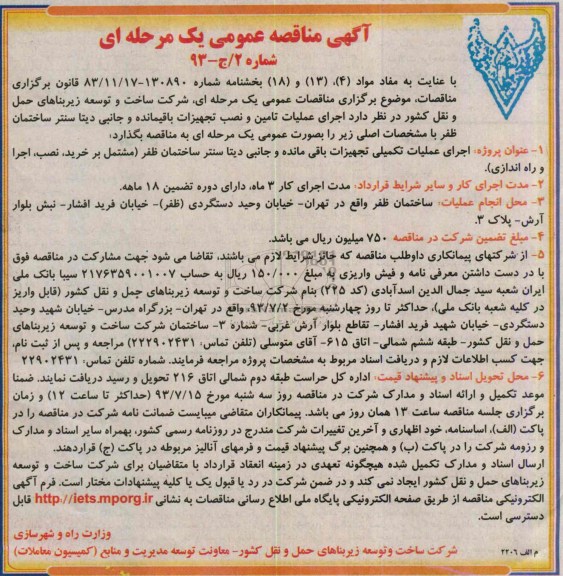 آگهی مناقصه عمومی یک مرحله ای
شماره ۲/ج-۹۳
با عنایت به مفاد مواد (۴)، (۱۳) و (۱۸) بخشنامه شماره ۱۳۰۸۹۰-۸۳/۱۱/۱۷ قانون برگزاری
مناقصات، موضوع برگزاری مناقصات عمومی یک مرحله ای، شرکت ساخت و توسعه زیربناهای حمل
و نقل کشور در نظر دارد اجرای عملیات تامین و نصب تجهیزات باقیمانده و جانبی دیتا سنتر ساختمان
ظفر با مشخصات اصلی زیر را بصورت عمومی یک مرحله ای به مناقصه بگذارد:
۱- عنوان پروژه: اجرای عملیات تکمیلی تجهیزات باقی مانده و جانبی دیتا سنتر ساختمان ظفر (مشتمل بر خرید، نصب، اجرا
و راه اندازی).
۲- مدت اجرای کار و سایر شرایط قرارداد: مدت اجرای کار ۳ ماه، دارای دوره تضمین ۱۸ ماهه.
۳- محل انجام عملیات: ساختمان ظفر واقع در تهران- خیابان وحید دستگردی (ظفر)- خیابان فرید افشار- نبش بلوار
آرش- پلاک ۳.
۴- مبلغ تضمین شرکت در مناقصه ۷۵۰ میلیون ریال می باشد.
۵- از شرکتهای پیمانکاری داوطلب مناقصه که حائز شرایط لازم می باشند، تقاضا می شود جهت مشارکت در مناقصه فوق
با در دست داشتن معرفی نامه و فیش واریزی به مبلغ ۱۵۰/۰۰۰ ریال به حساب ۲۱۷۶۳۵۹۰۰۱۰۰۷ سیبا بانک ملی
ایران شعبه سید جمال الدین اسدآبادی (کد ۲۴۵) بنام شرکت ساخت و توسعه زیربناهای حمل و نقل کشور (قابل واریز
در کلیه شعبه بانک ملی)، حداکثر تا روز چهارشنبه مورخ ۹۳/۷/۲، واقع در تهران- بزرگراه مدرس- خیابان شهید وحید
دستگردی- خیابان شهید فرید افشار- تقاطع بلوار آرش غربی- شماره ۳- ساختمان شرکت ساخت و توسعه زیربناهای
حمل و نقل کشور- طبقه ششم شمالی- اتاق ۶۱۵- آقای متوسلی (تلفن تماس: ۲۲۲۹۰۲۴۳۱) مراجعه و پس از ثبت نام،
جهت کسب اطلاعات لازم و دریافت اسناد مربوط به مشخصات پروژه مراجعه فرمایند. شماره تلفن تماس: ۲۲۹۰۲۴۳۱
۶- محل تحویل اسناد و پیشنهاد قیمت: اداره کل حراست طبقه دوم شمالی اتاق ۲۱۶ تحویل و رسید دریافت نمایند. ضمنا
موعد تکمیل و ارائه اسناد و مدارک شرکت در مناقصه روز سه شنبه مورخ ۹۳/۷/۱۵ (حداکثر تا ساعت ۱۲) و زمان
برگزاری جلسه مناقصه ساعت ۱۳ همان روز می باشد. پیمانکاران متقاضی میبایست ضمانت نامه شرکت در مناقصه را در
پاکت (الف)، اساسنامه، خود اظهاری و آخرین تغییرات شرکت مندرج در روزنامه رسمی کشور، بهمراه سایر اسناد و مدارک
و رزومه شرکت را در پاکت (ب) و همچنین برگ پیشنهاد قیمت و فرمهای آنالیز مربوطه در پاکت (ج) قراردهند.
ارسال اسناد و مدارک تکمیل شده هیچگونه تعهدی در زمینه انعقاد قرارداد با متقاضیان برای شرکت ساخت و توسعه
زیربناهای حمل و نقل کشور ایجاد نمی کند و در ضمن شرکت در رد یا قبول یک یا کلیه پیشنهادات مختار است. فرم آگهی
الکترونیکی مناقصه از طریق صفحه الکترونیکی پایگاه ملی اطلاع رسانی مناقصات به نشانی http://iets.mporg.ir قابل
دسترسی است.
وزارت راه و شهرسازی
شرکت ساخت وتوسعه زیربناهای حمل و نقل کشور- معاونت توسعه مدیریت و منابع (کمیسیون معاملات)
م الف ۲۲۰۶